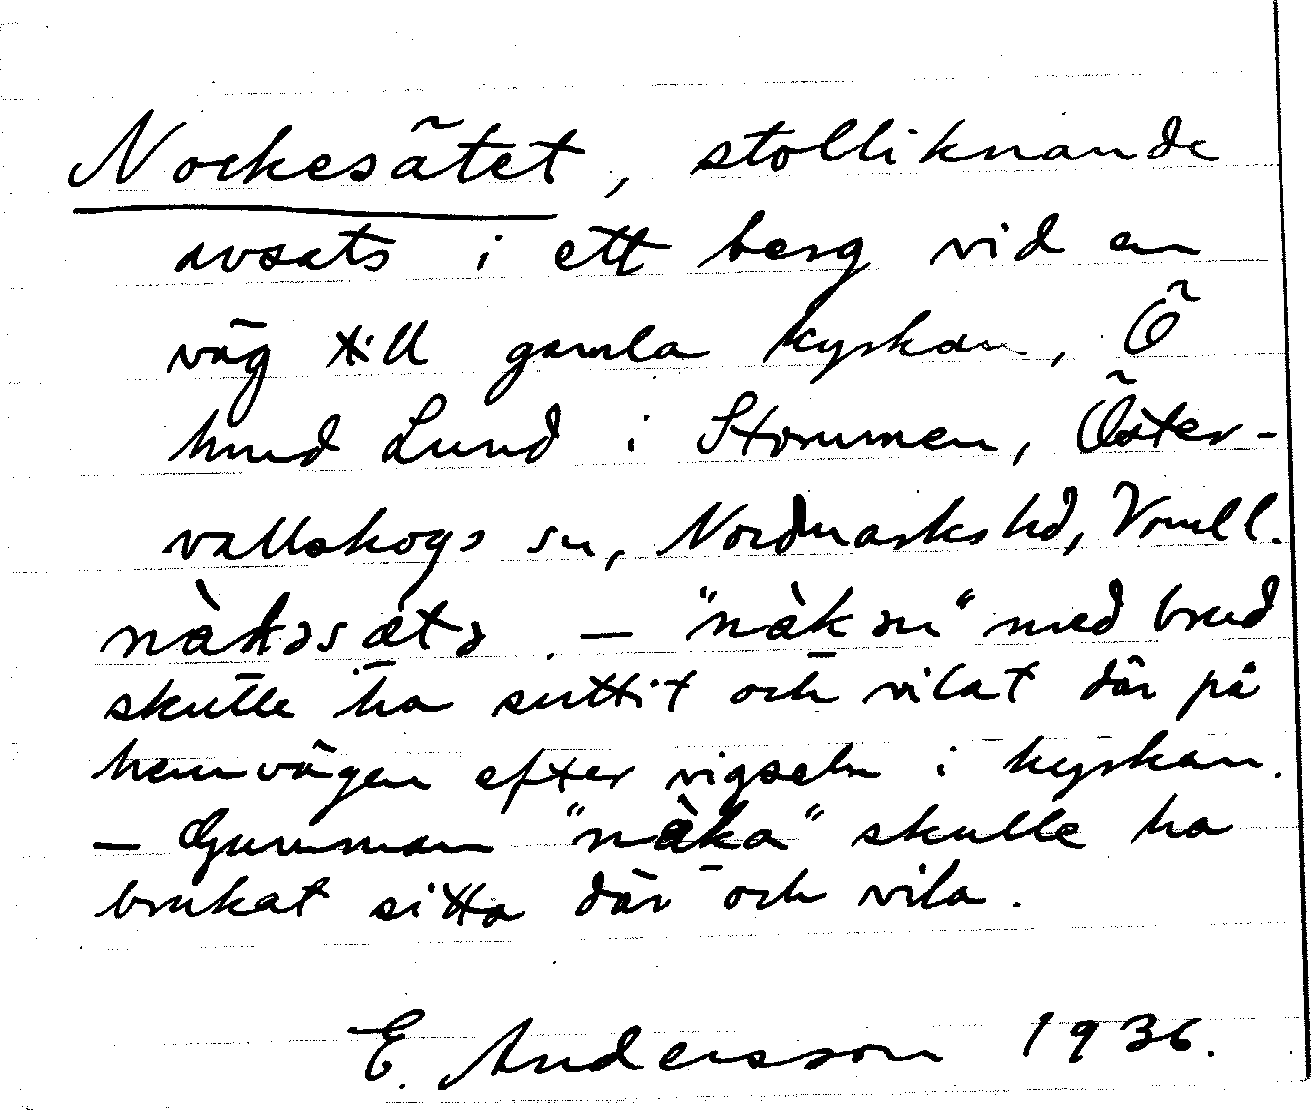 Nockesätet, stolliknande
avsats i ett berg vid en
väg till gamla kyrkan, Ö
hmd Lund i Strommen, Öster-
vallskogs sn, Nordmarks hd, Vrml.
nàkəsätə. — "nàkən" med brud
skulle ha suttit och vilat där på
hemvägen efter vigseln i kyrkan.
— Gumman "nàka" skulle ha
brukat sitta där och vila.
E. Andersson 1936.